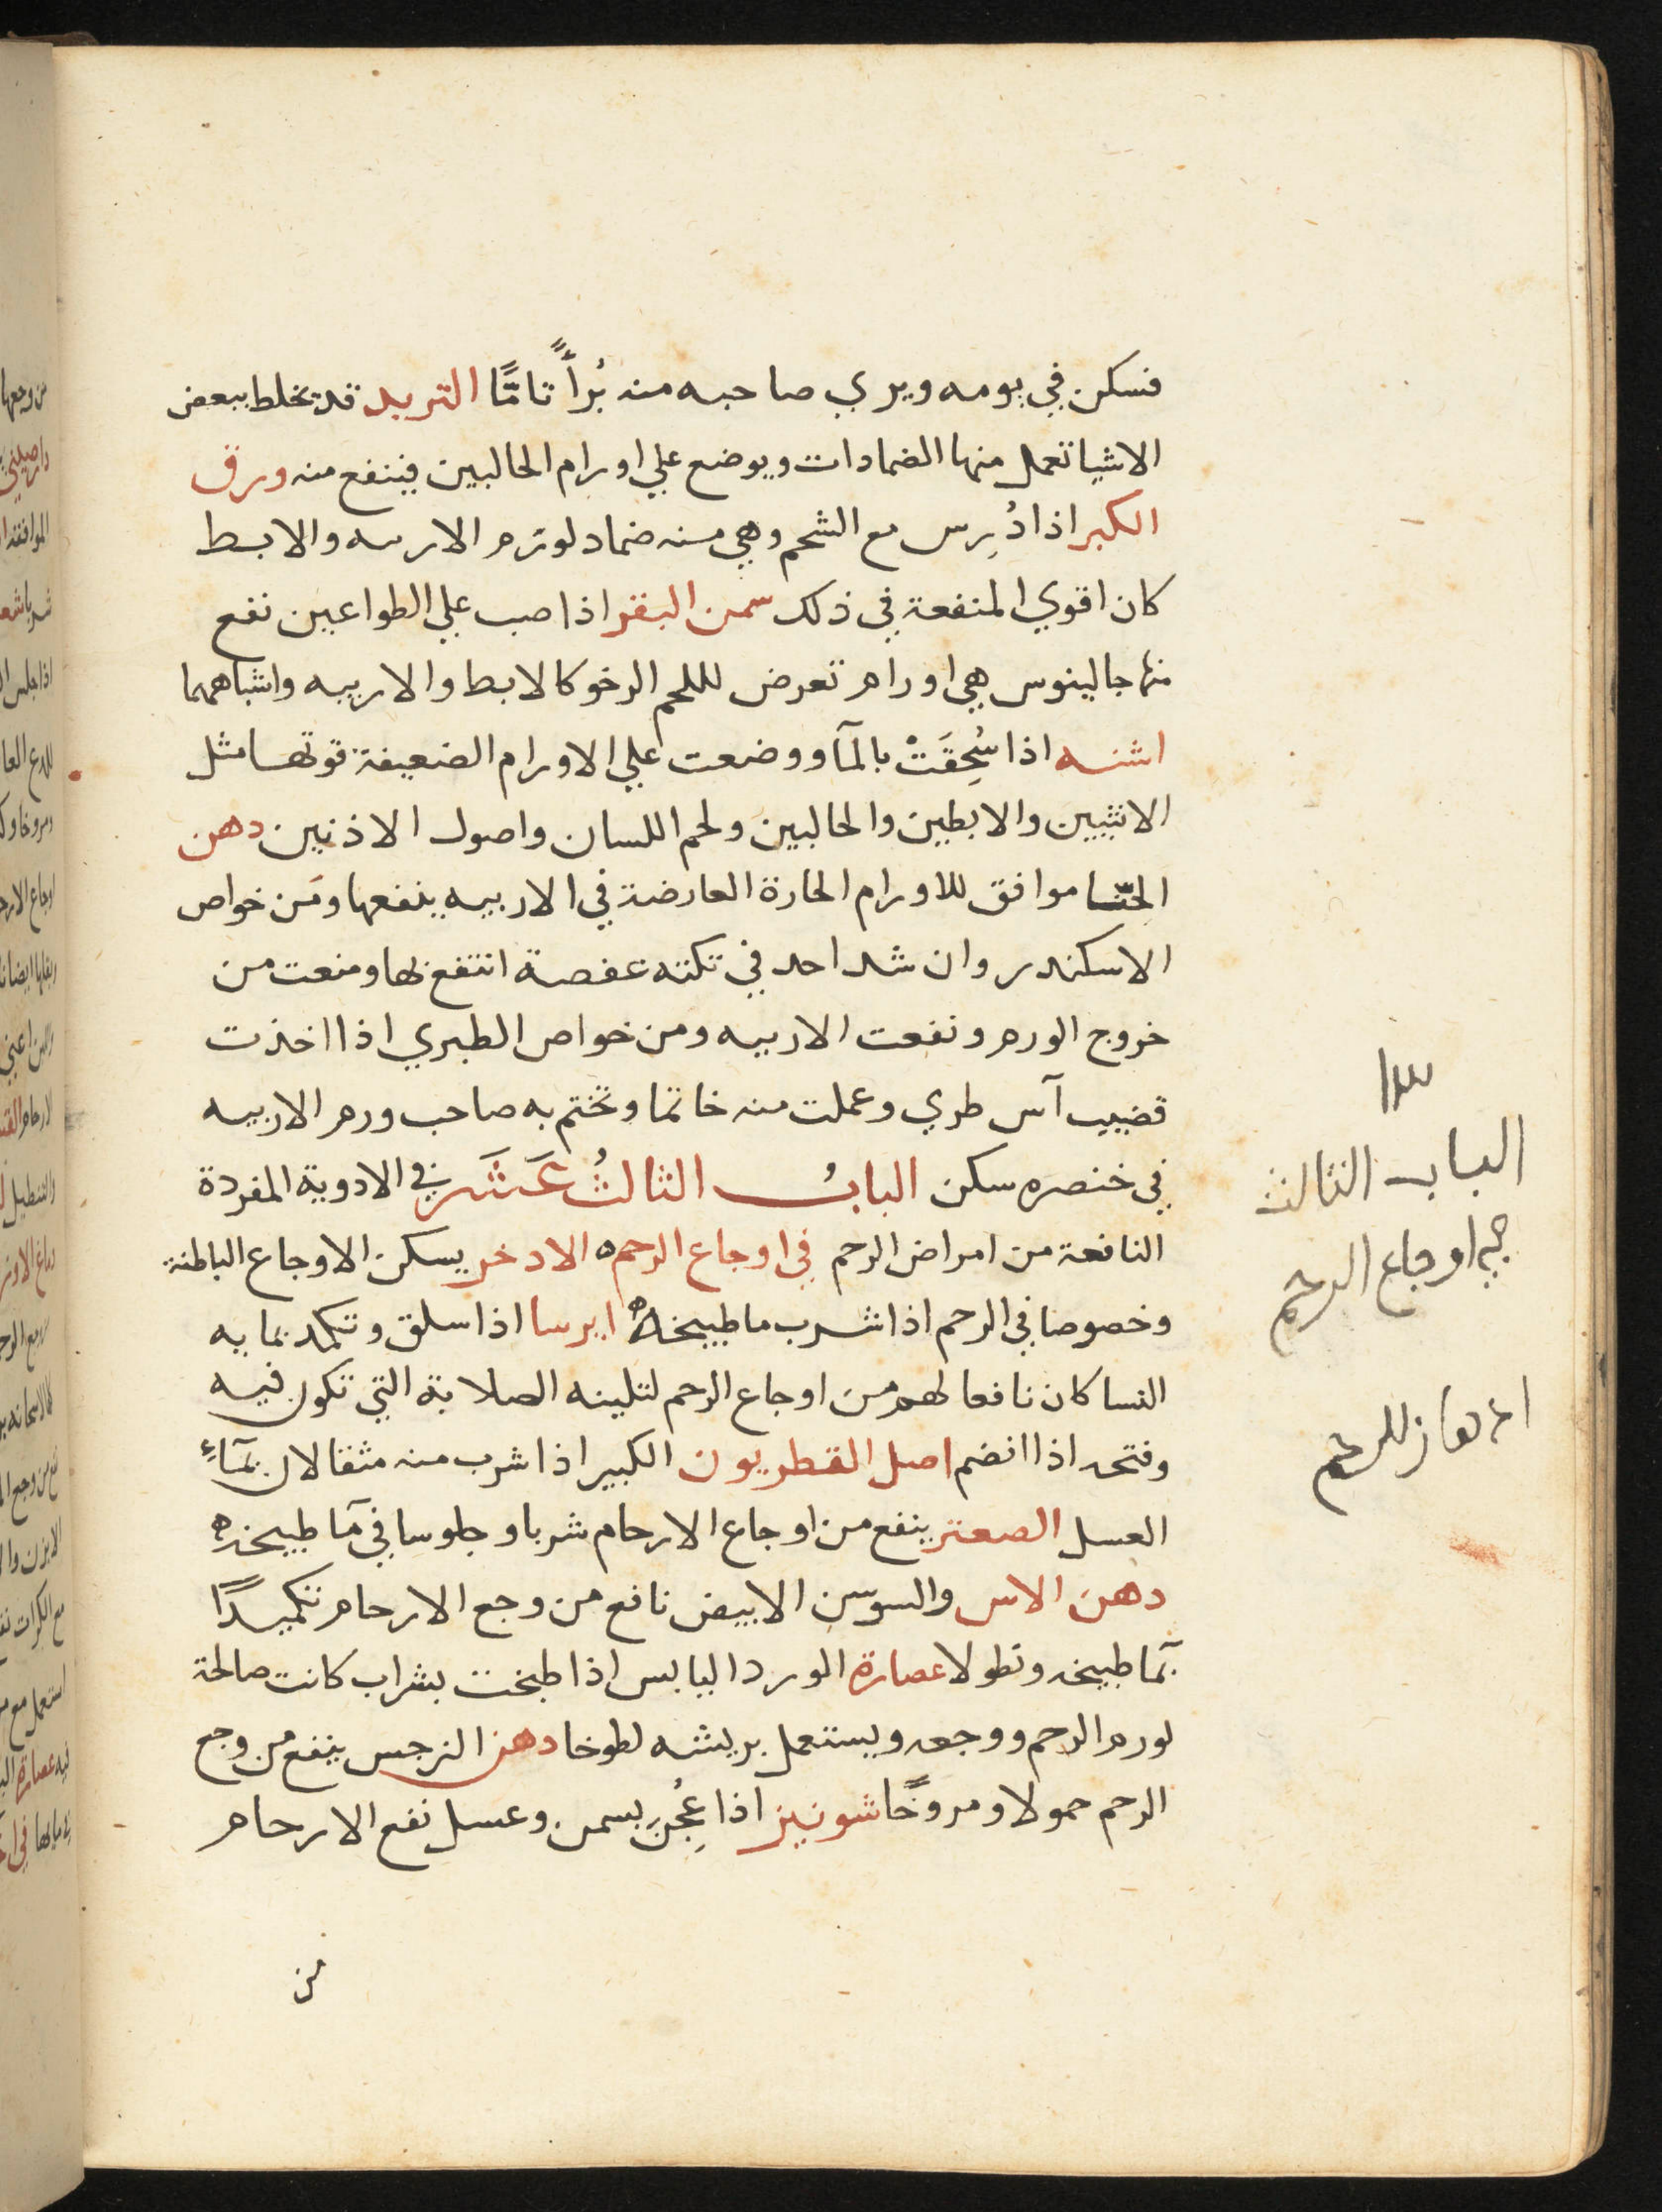 فسكن في يومه ويري صاحبه منه بُرأً تامًا التربد قد يخلط ببعض
الاشيا تعمل منها الضمادات ويوضع علي اورام الحالبين فينفع منه ورق
الكبر اذا دُرِس مع الشحم وهي منه ضماد لورم الاربيه والابط
كان اقوي المنفعة في ذلك سمن البقر اذا صب علي الطواعين نفع
منها جالينوس هي اورام تعرض لللحم الرخو كالابط والاربيه واشباههما
اشنه اذا سُحِقَتْ بالمآ ووضعت علي الاورام الضعيفة قوتها مثل
الانثيين والابطين والحالبين ولحم اللسان واصول الاذنين دهن
الحنّا موافق للاورام الحارة العارضة في الاربيه ينفعها ومن خواص
الاسكندر وان شد احد في تكته عفصة انتفع بها ومنعت من
خروج الورم ونفعت الاربيه ومن خواص الطبري اذا اخذت
قضيب آس طري وعملت منه خاتما وتختم به صاحب ورم الاربيه
في خنصره سكن البابُ الثالثُ عَشَر في الادوية المفردة
النافعة من امراض الرحم في اوجاع الرحم ه الادخر يسكن الاوجاع الباطنة
وخصوصا في الرحم اذا شرب ما طبيخه ه ايرسا اذا سلق وتكمد بمايه
النسا كان نافعا لهم من اوجاع الرحم لتلينه الصلابة التي تكون فيه
وفتحه اذا انضم اصل القطريون الكبير اذا شرب منه مثقالان بمآءٍ
العسل الصعتر ينفع من اوجاع الارحام شربا وجلوسا في مآ طبيخه ه
دهن الاس والسوسن الابيض نافع من وجع الارحام تكميدًا
بمآ طبيخه ونطولا عصارة الورد اليابس اذا طبخت بشراب كانت صالحة
لورم الرحم ووجعه ويستعمل بريشه لطوخا دهن النرجس ينفع من وجع
الرحم حمولا ومروخًا شونيز اذا عُجِنَ بسمن وعسل نفع الارحام
من
١٣
الباب الثالث
في اوجاع الرحم
للرحم